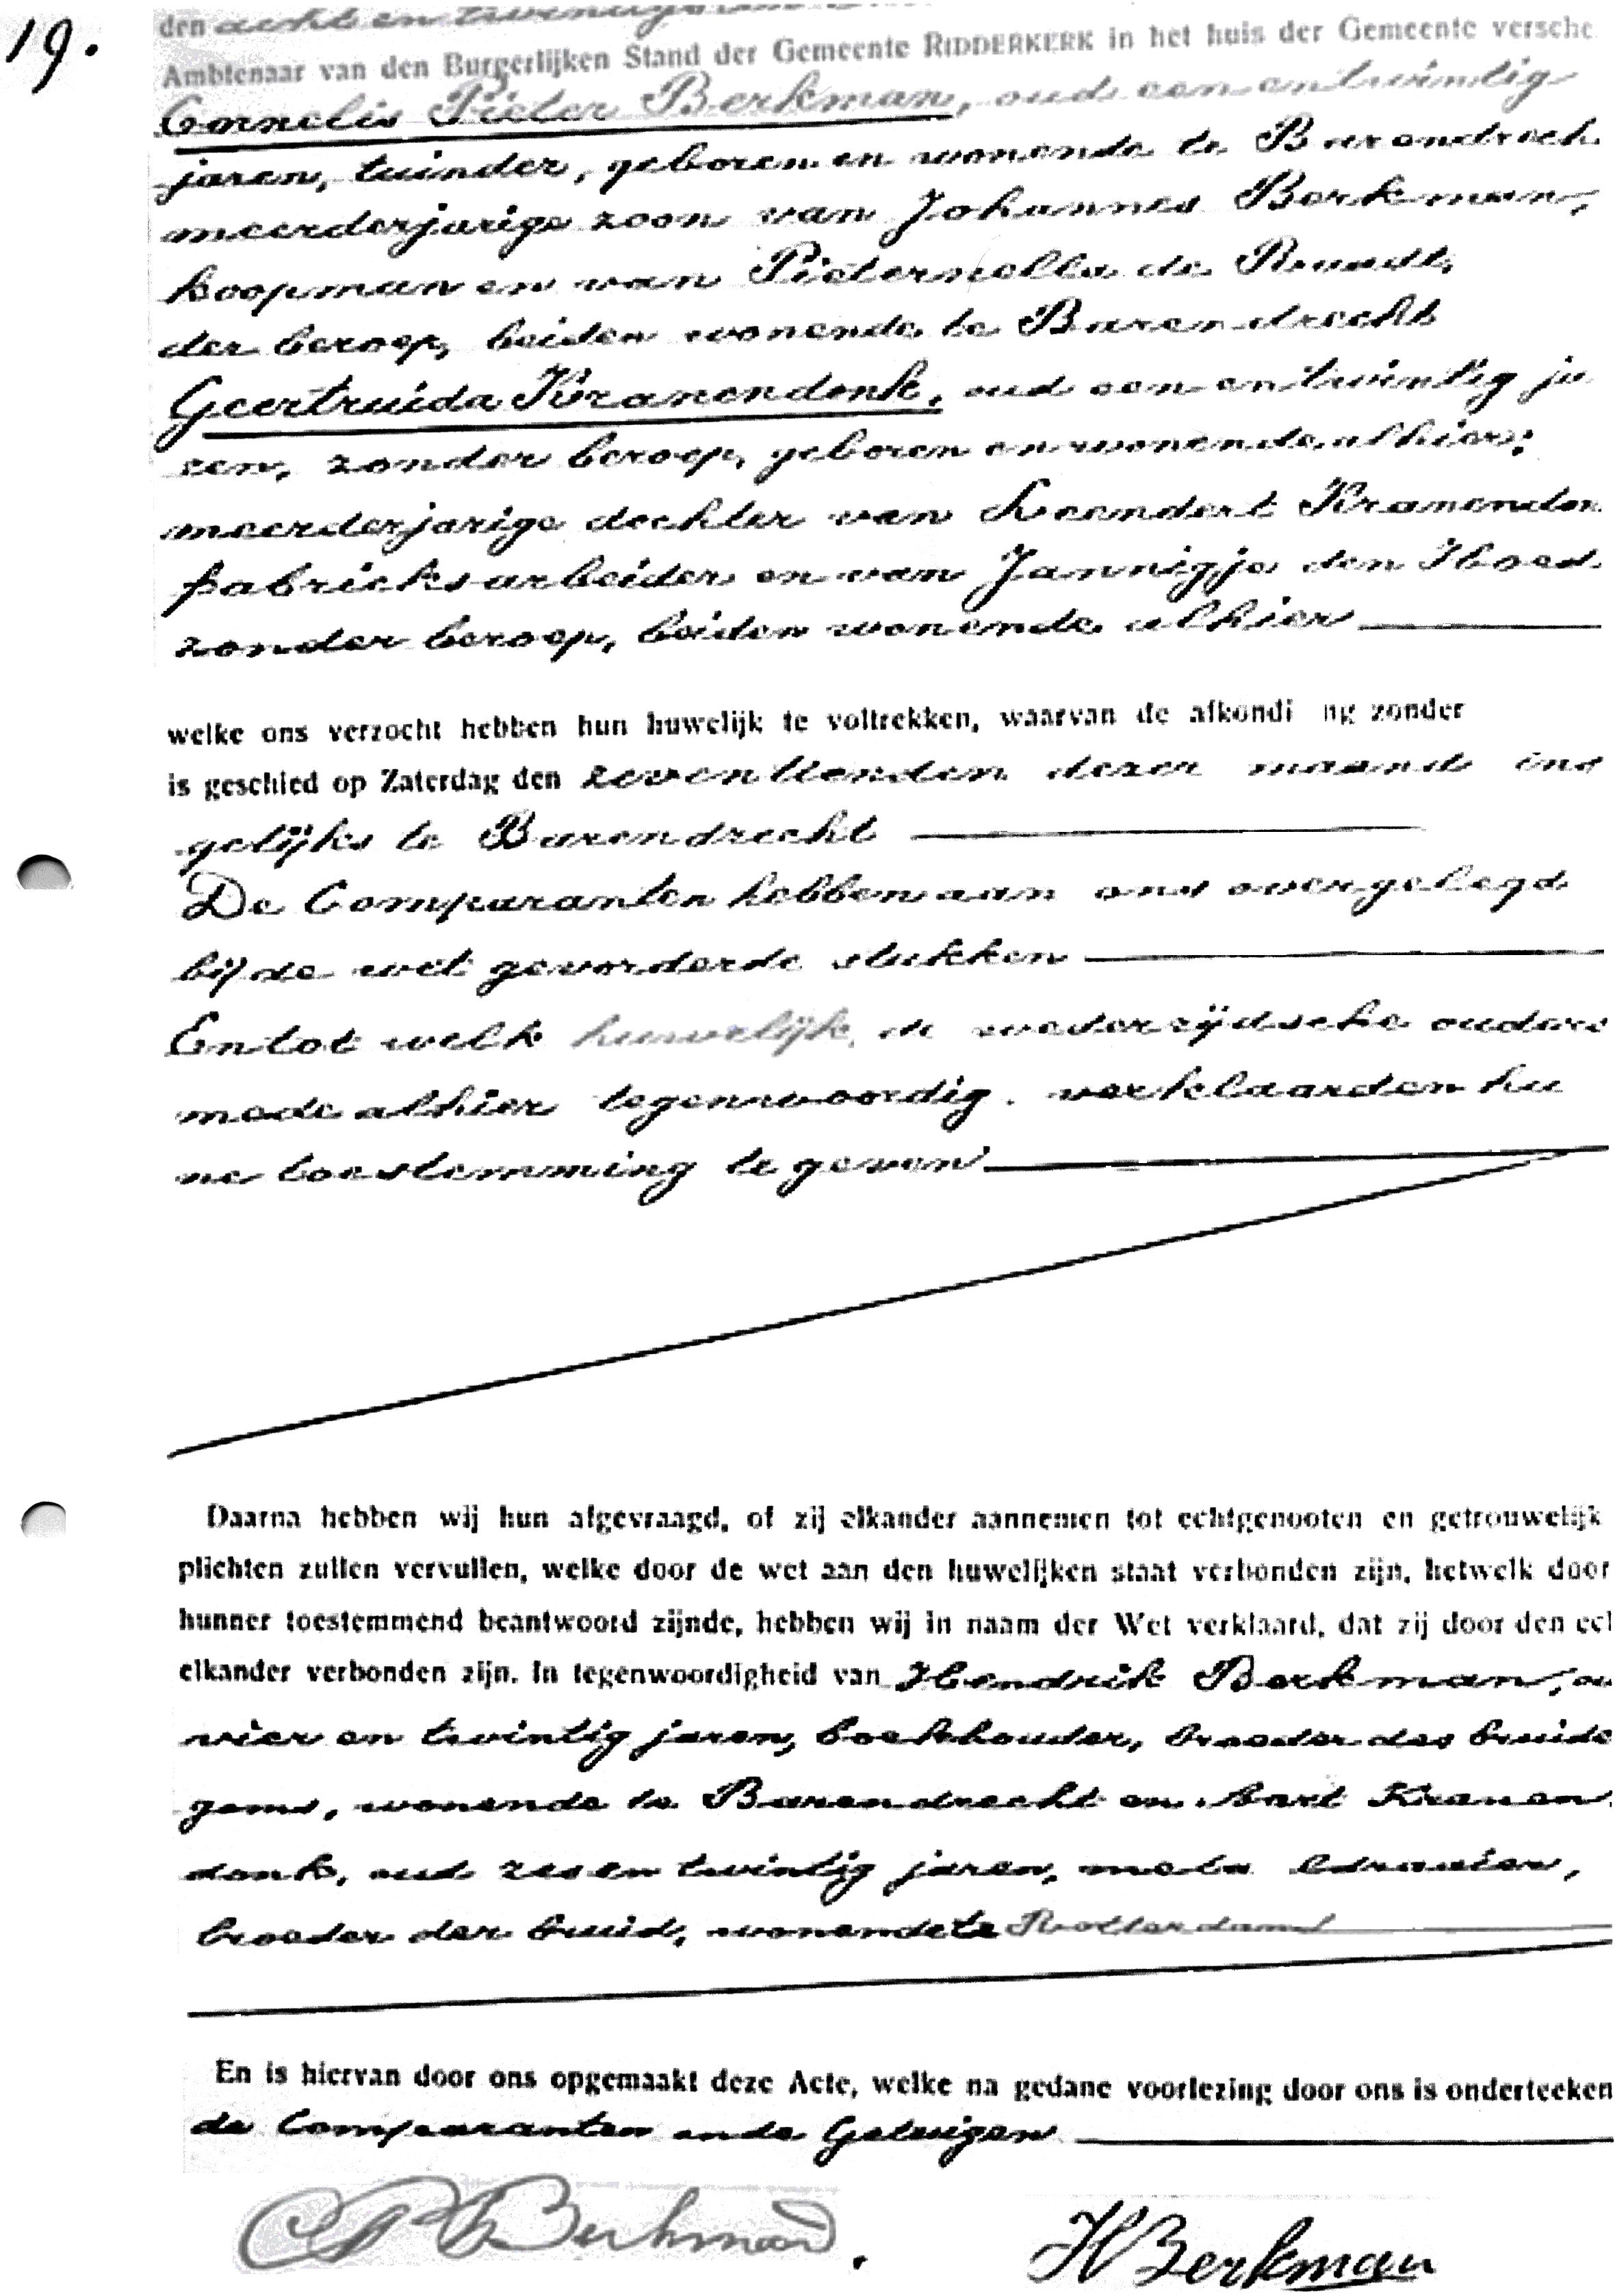 19.
den acht en twintigsten
Ambtenaar van den Burgerlijken Stand der Gemeente RIDDERKERK in het huis der Gemeente versche
Cornelis Pieter Berkman, oud een en twintig
jaren, tuinder, geboren en wonende te Barendrech
meerderjarige zoon van Johannes Berkman,
koopman en van Pieternella de Raadt,
der beroep, beiden wonende te Barendrecht
Geertruida Kranendonk, oud een en twintig ja
ren, zonder beroep, geboren en wonende alhier;
meerderjarige dochter van Leendert Kranendon
fabrieksarbeider en van Jannigje den Hoed
zonder beroep, beiden wonende alhier
welke ons verzocht hebben hun huwelijk te voltrekken, waarvan de afkondi ng zonder
is geschied op Zaterdag den zeventienden dezer maand ins
gelijks te Barendrecht
De Comparanten hebben aan ons overgelegd
bij de wet gevorderde stukken
En tot welk huwelijk de wederzijdsche ouders
mede alhier tegenwoordig, verklaarden hu
ne toestemming te geven
Daarna hebben wij hun afgevraagd, of zij elkander aannemen tot echtgenooten en getrouwelijk
plichten zullen vervullen, welke door de wet aan den huwelijken staat verbonden zijn, hetwelk door
hunner toestemmend beantwoord zijnde, hebben wij in naam der Wet verklaard, dat zij door den ecl
elkander verbonden zijn. In tegenwoordigheid van Hendrik Berkman, ou
vier en twintig jaren, boekhouder, broeder des bruide
goms, wonende te Barendrecht en Aart Kranen
donk, oud zes en twintig jaren, metaaldraaier,
broeder der bruid, wonende te Rotterdam
En is hiervan door ons opgemaakt deze Acte, welke na gedane voorlezing door ons is onderteeken
de Comparanten en de Getuigen
CP Berkman.
H Berkman